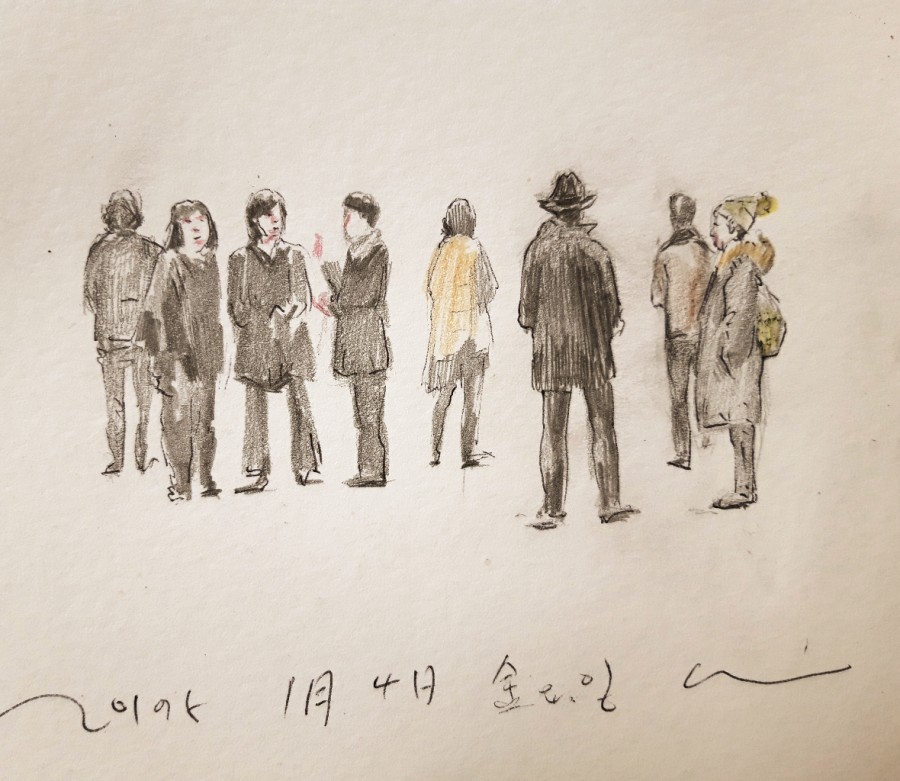 2019年 1月 4日 金요일